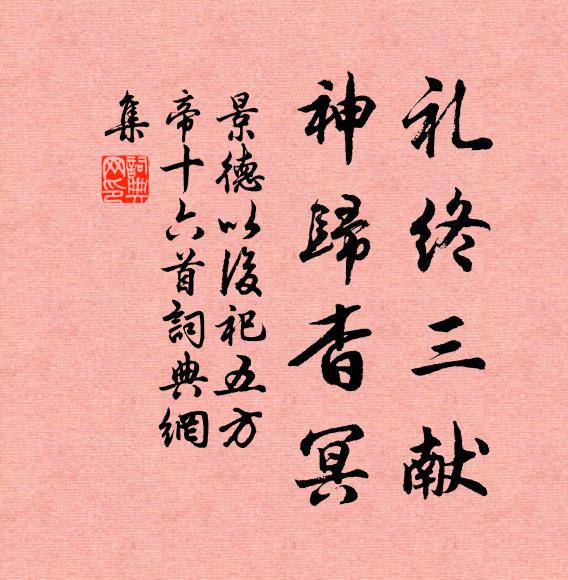 礼终三献
神歸杳冥
景德以後祀五方
帝十六首詞典網
集
詞典网印